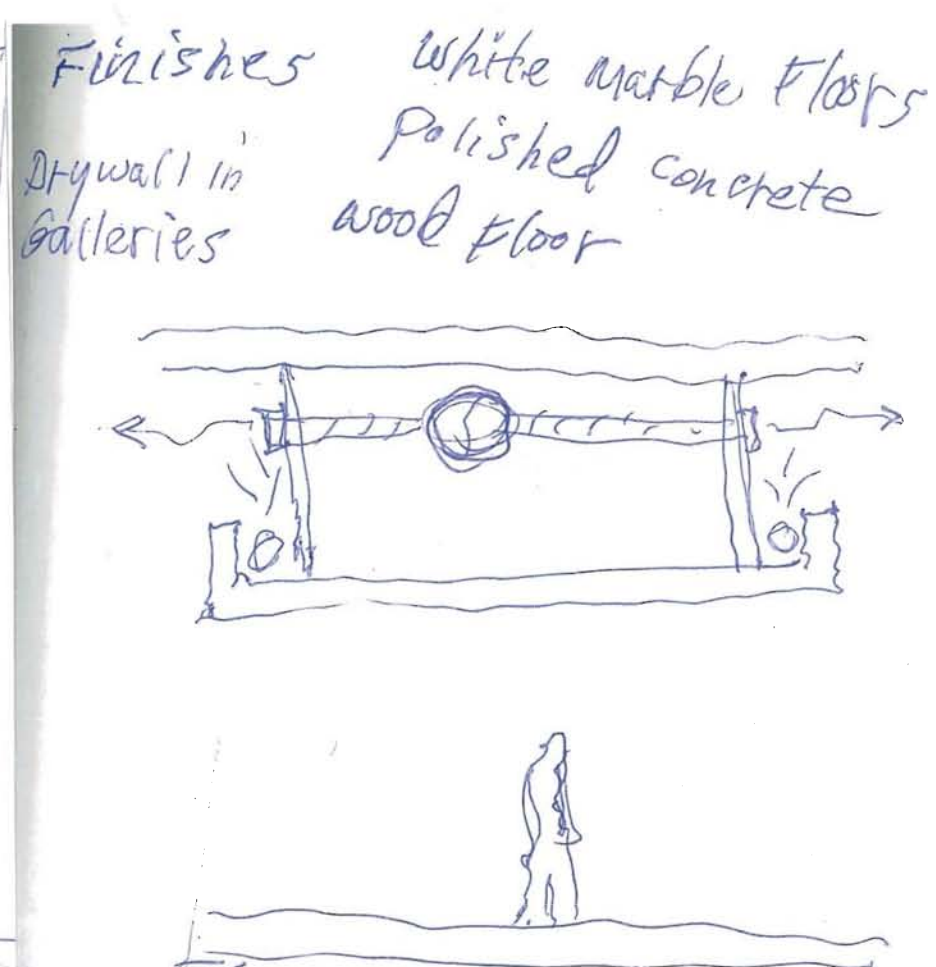 Finishes White marble Floors
Polished concrete
Drywall in
Galleries wood Floor